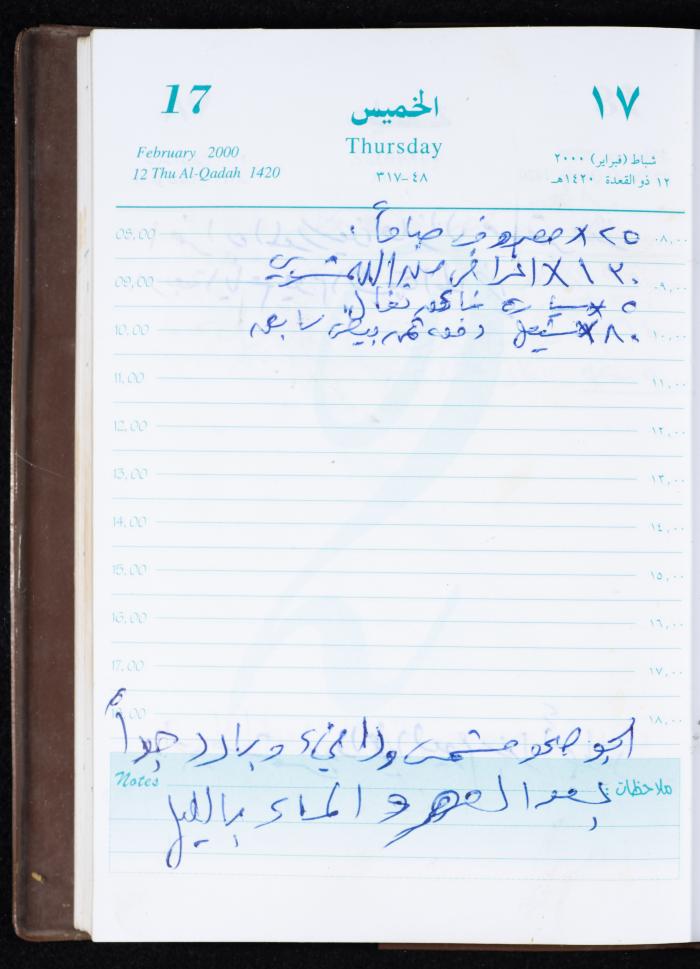 17 الخميس ١٧
February 2000 Thursday شباط (فبراير) ٢٠٠٠
12 Thu Al-Qadah 1420 ٣١٧-٤٨ ١٢ ذو القعدة ١٤٢٠هـ
08,00 ٢٥ × مصروف صباحاً ٠٨,٠٠
09,00 ١٣٠ × ٠٩,٠٠
٥ × سيارة
10,00 ٨٠ × دفعه رابعه ١٠,٠٠
11,00 ١١,٠٠
12,00 ١٢,٠٠
13,00 ١٣,٠٠
14,00 ١٤,٠٠
15,00 ١٥,٠٠
16,00 ١٦,٠٠
17,00 ١٧,٠٠
18,00 ١٨,٠٠
الجو صحو مشمس ودافيء وبارد جداً
Notes ملاحظات :
بعد الظهر و المساء بالليل